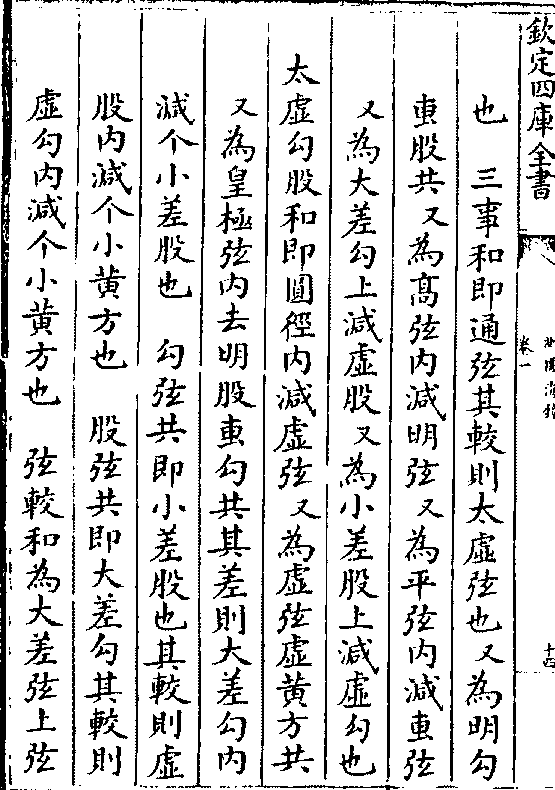 欽定四庫全書
卷一
十四
也　三事和即通弦其較則太虛弦也又為明勾
叀股共又為髙弦内減明弦又為平弦内減叀弦
又為大差勾上減虛股又為小差股上減虛勾也
太虛勾股和即圓徑内減虛弦又為虛弦虛黄方共
又為皇極弦内去明股叀勾共其差則大差勾内
減个小差股也　勾弦共即小差股也其較則虛
股内減个小黄方也　股弦共即大差勾其較則
虛勾内減个小黄方也　弦較和為大差弦上弦